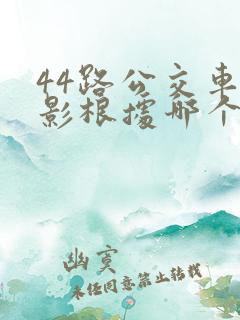 44路公交车
影根据那个
幽寞
未经同意禁止转载